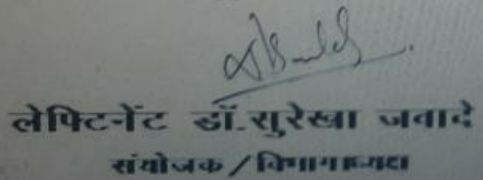 लेफ्टिनेंट डॉ.सुरेखा जवादे
संयोजक / विभागाध्यक्ष